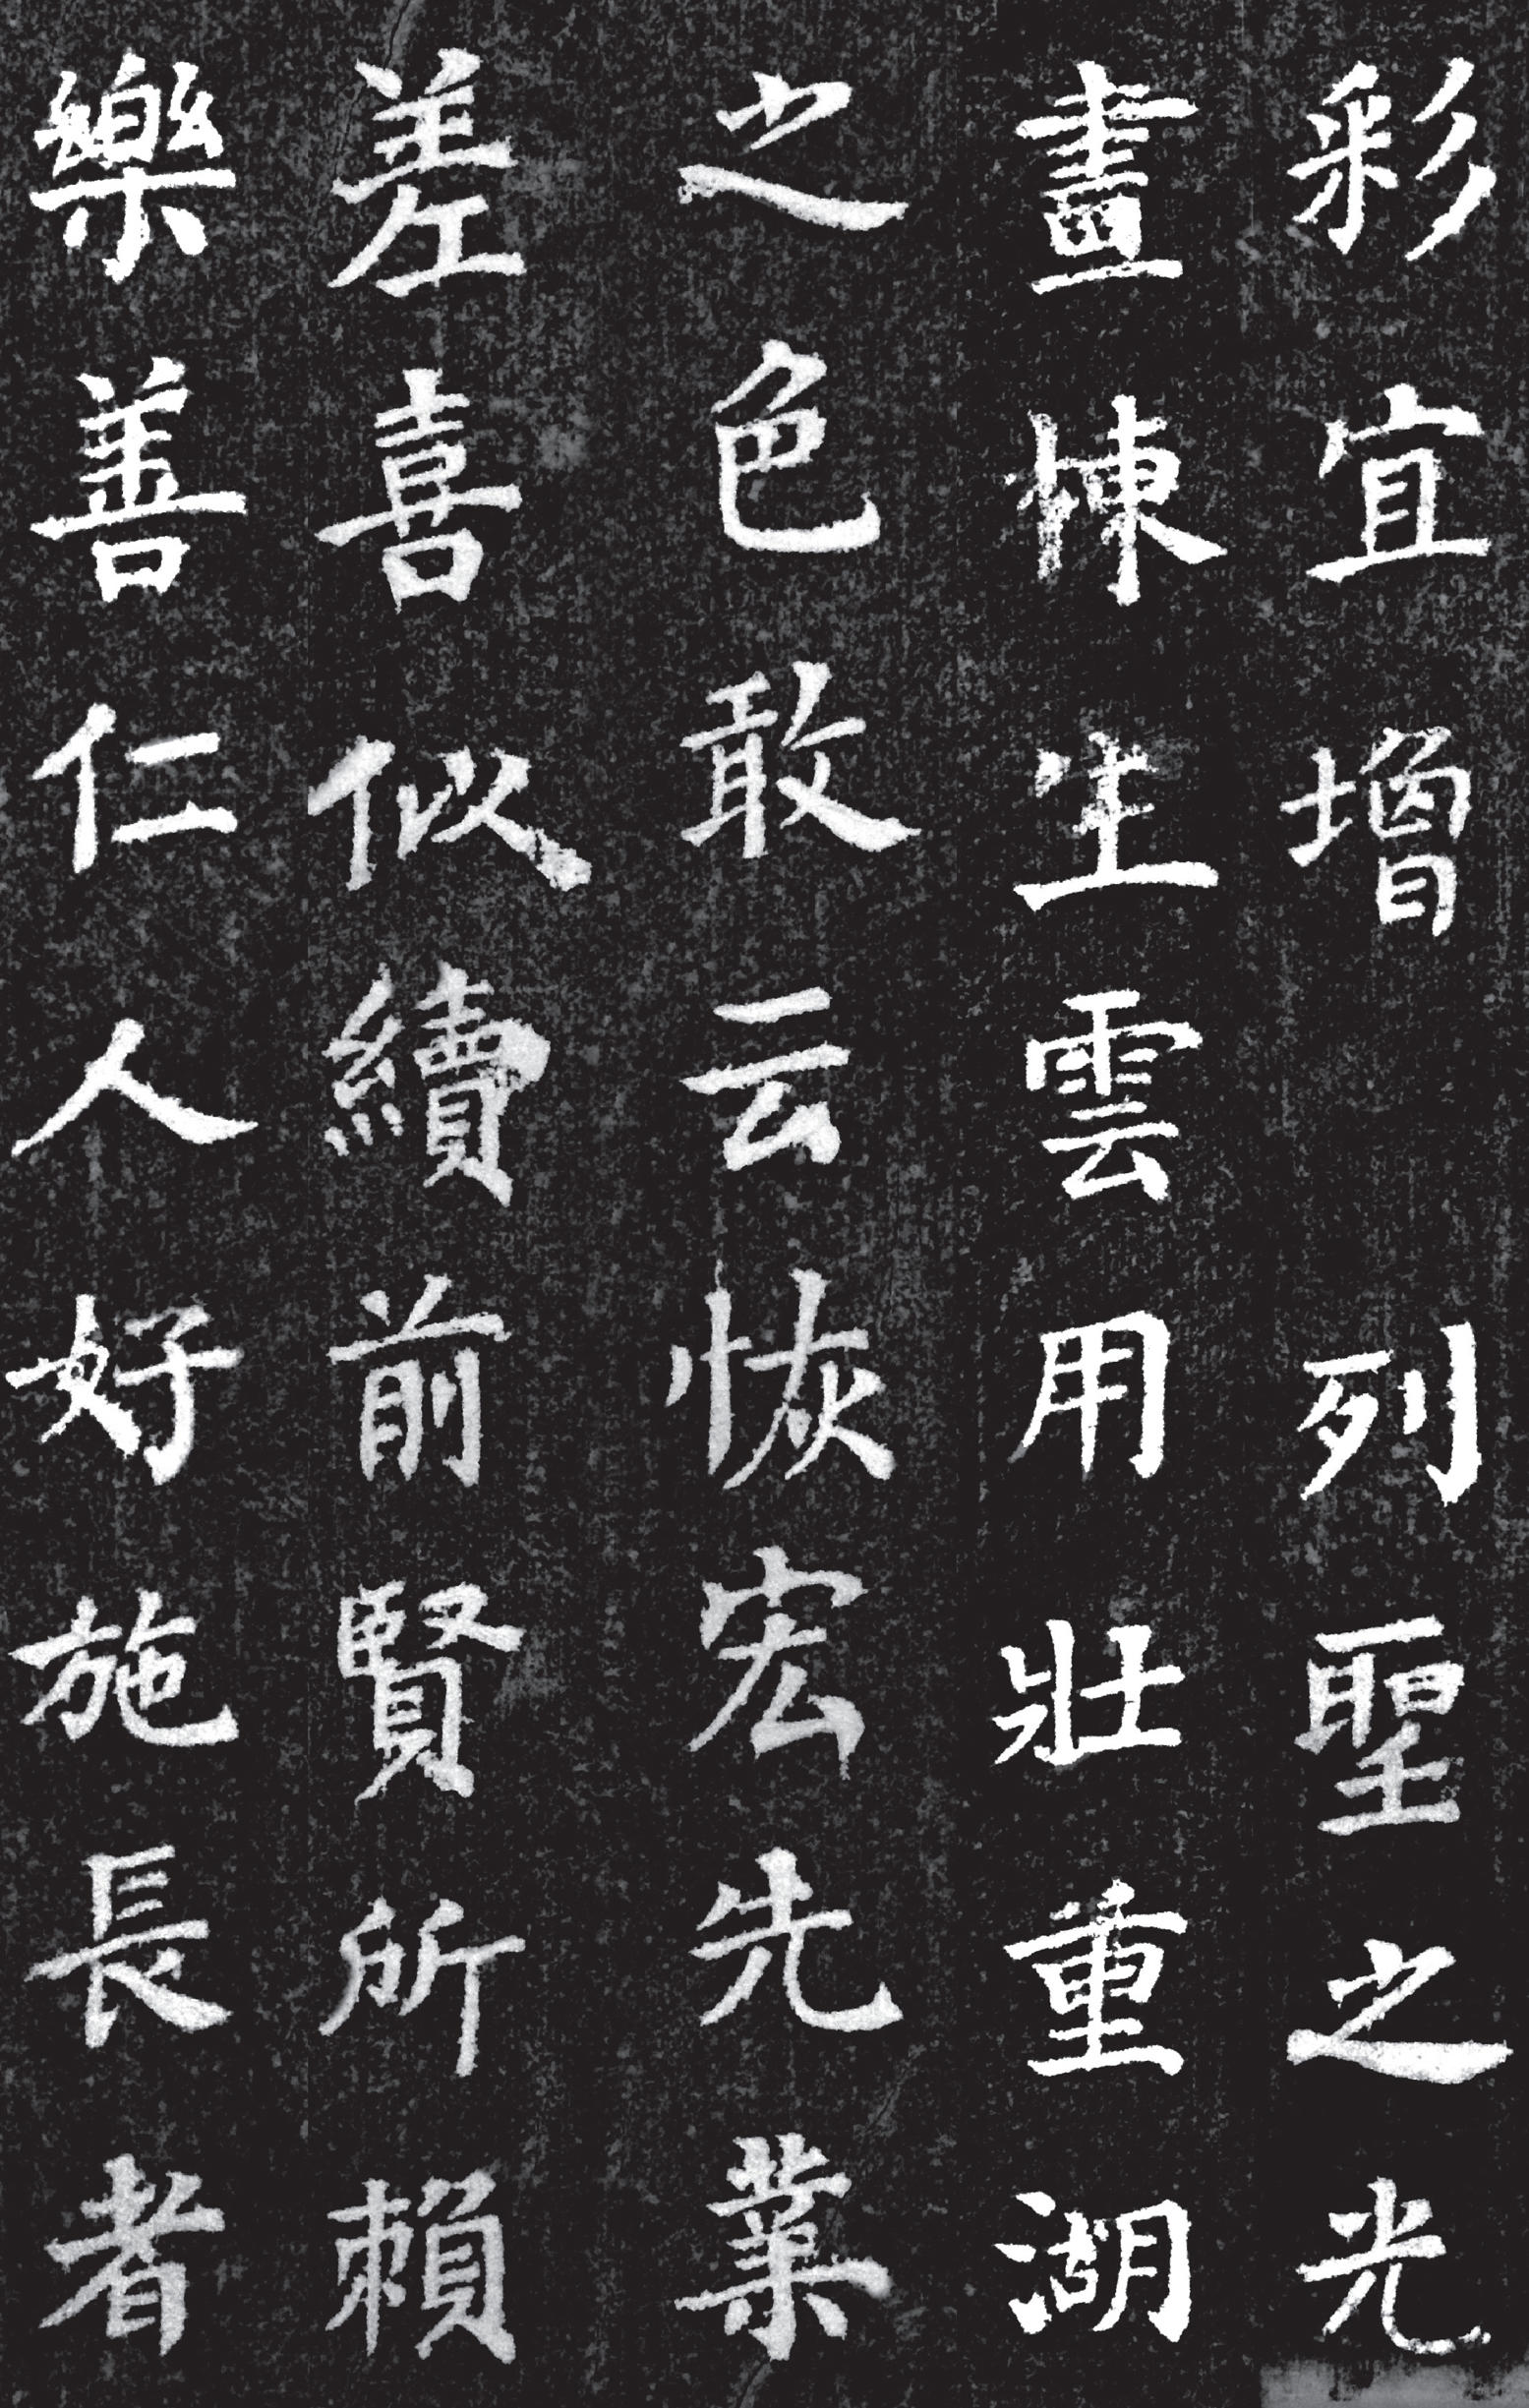 彩宜增列聖之光
畫棟生雲用壯重湖
之色敢云恢宏先業
差喜似續前賢所賴
樂善仁人好施長者